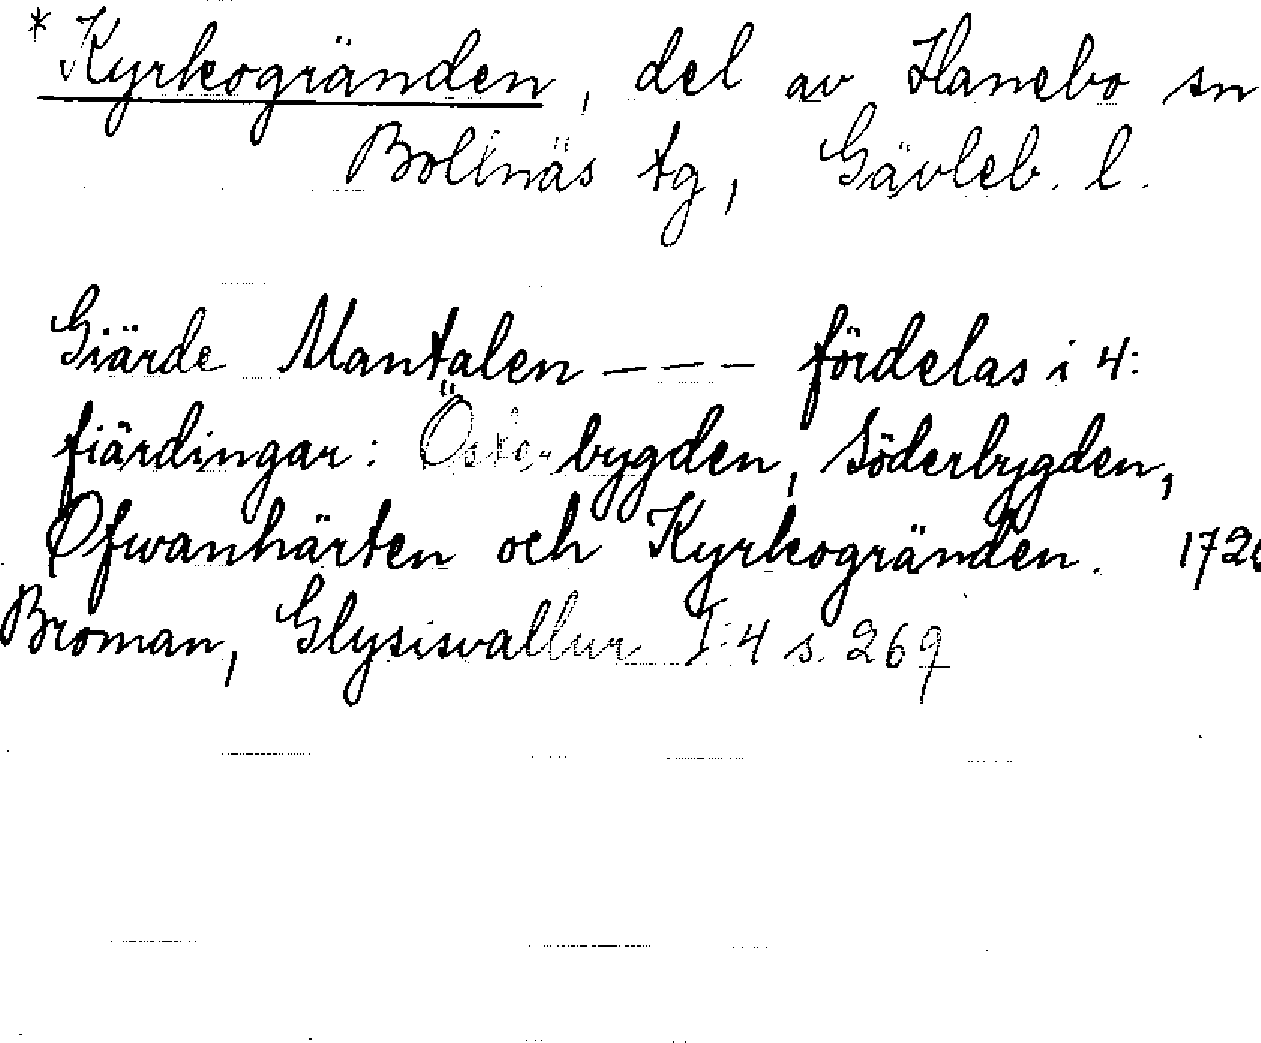 *Kyrkogränden, del av Hanebo sn
Bollnäs tg, Gävleb. l.
Giärde Mantalen – – – fördelas i 4:
fiärdingar: Österbygden, Söderbygden,
Öfwanhärten och Kyrkogränden. 172
Broman, Glysisvallur I:4 s. 269